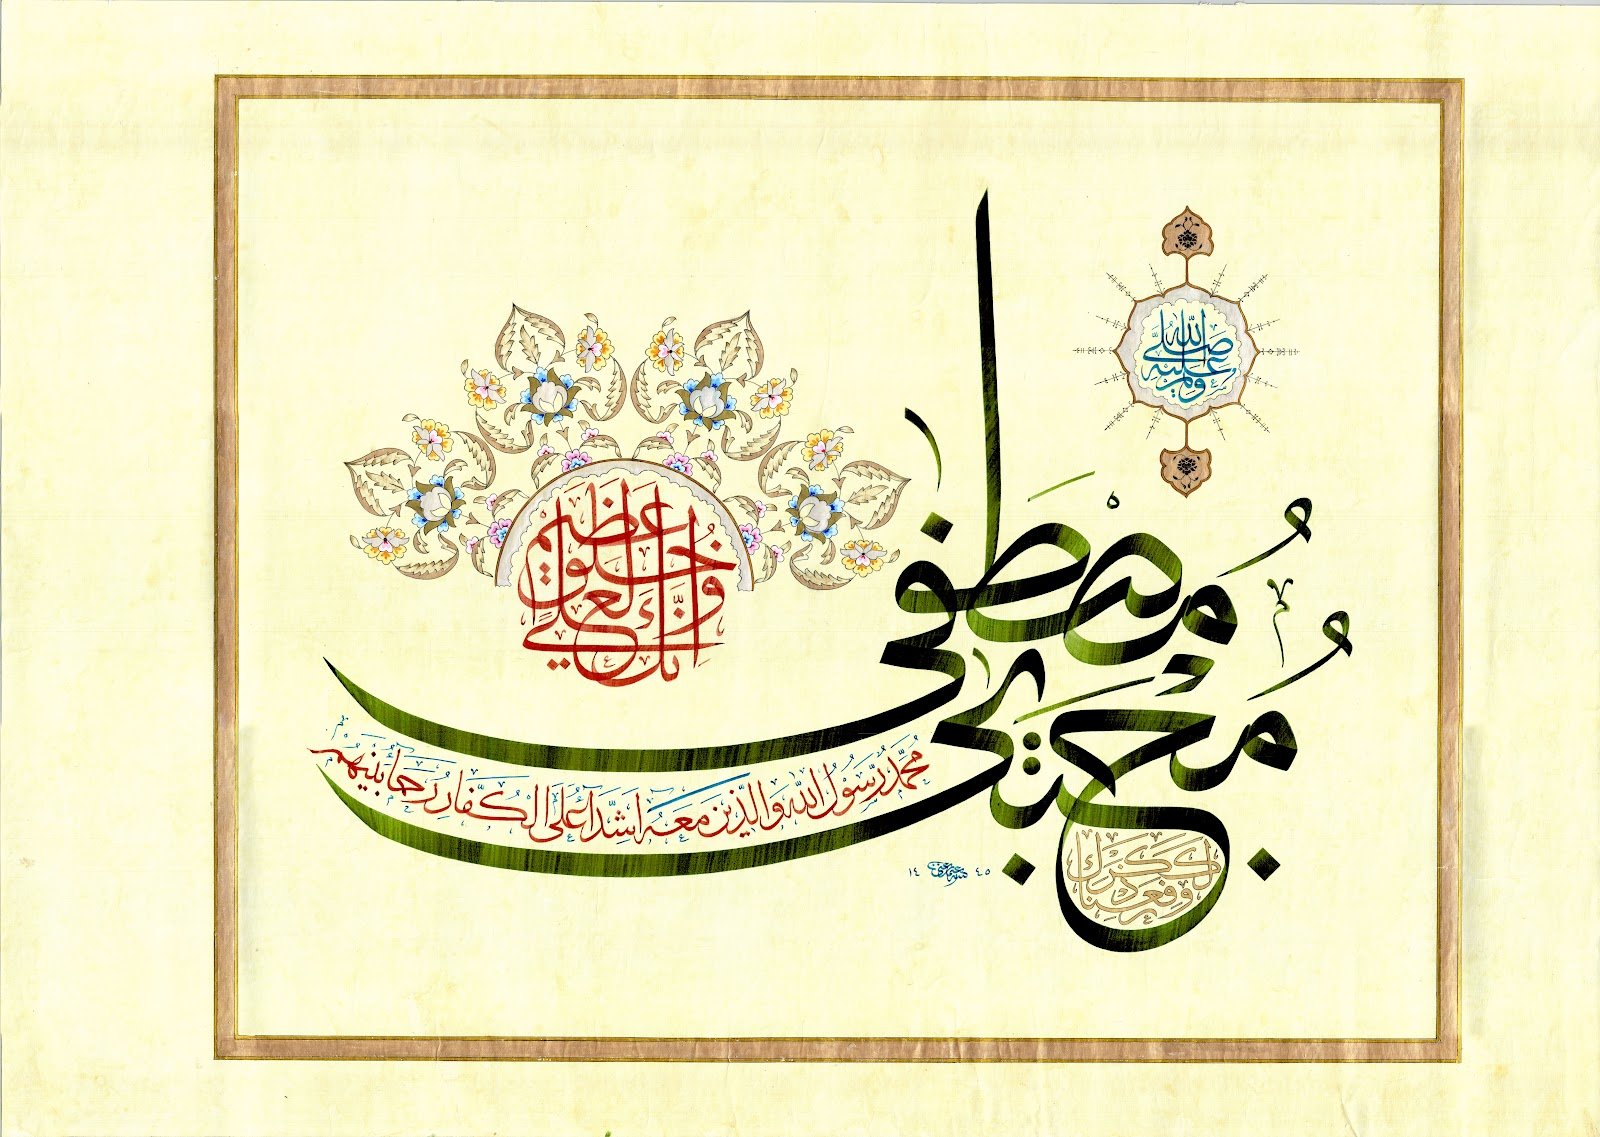 صلى الله عليه وسلم
مصطفى
مجتبى
وإنك لعلى خلق عظيم
محمد رسول الله والذين معه اشداء على الكفار رحماء بينهم
ورفعنا لك ذكرك
١٤ ٤٥